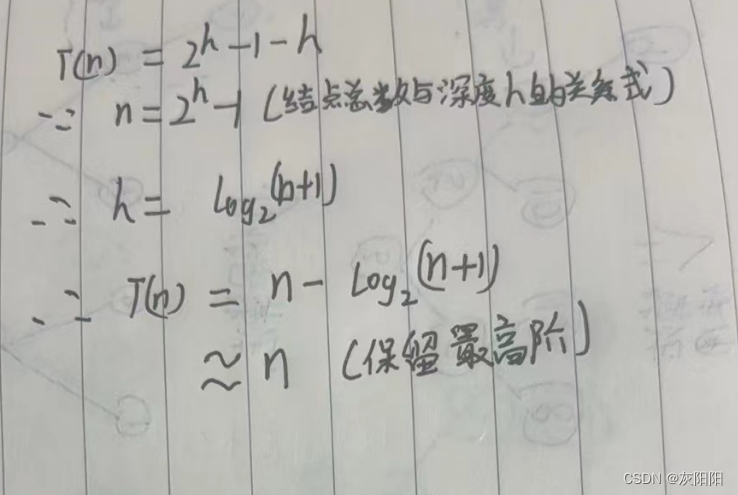 T(n) = 2^h - 1 - h
∵ n = 2^h - 1 (结点总数与深度h的关系式)
∴ h = log₂(n+1)
∴ T(n) = n - log₂(n+1)
≈ n (保留最高阶)
CSDN @灰阳阳